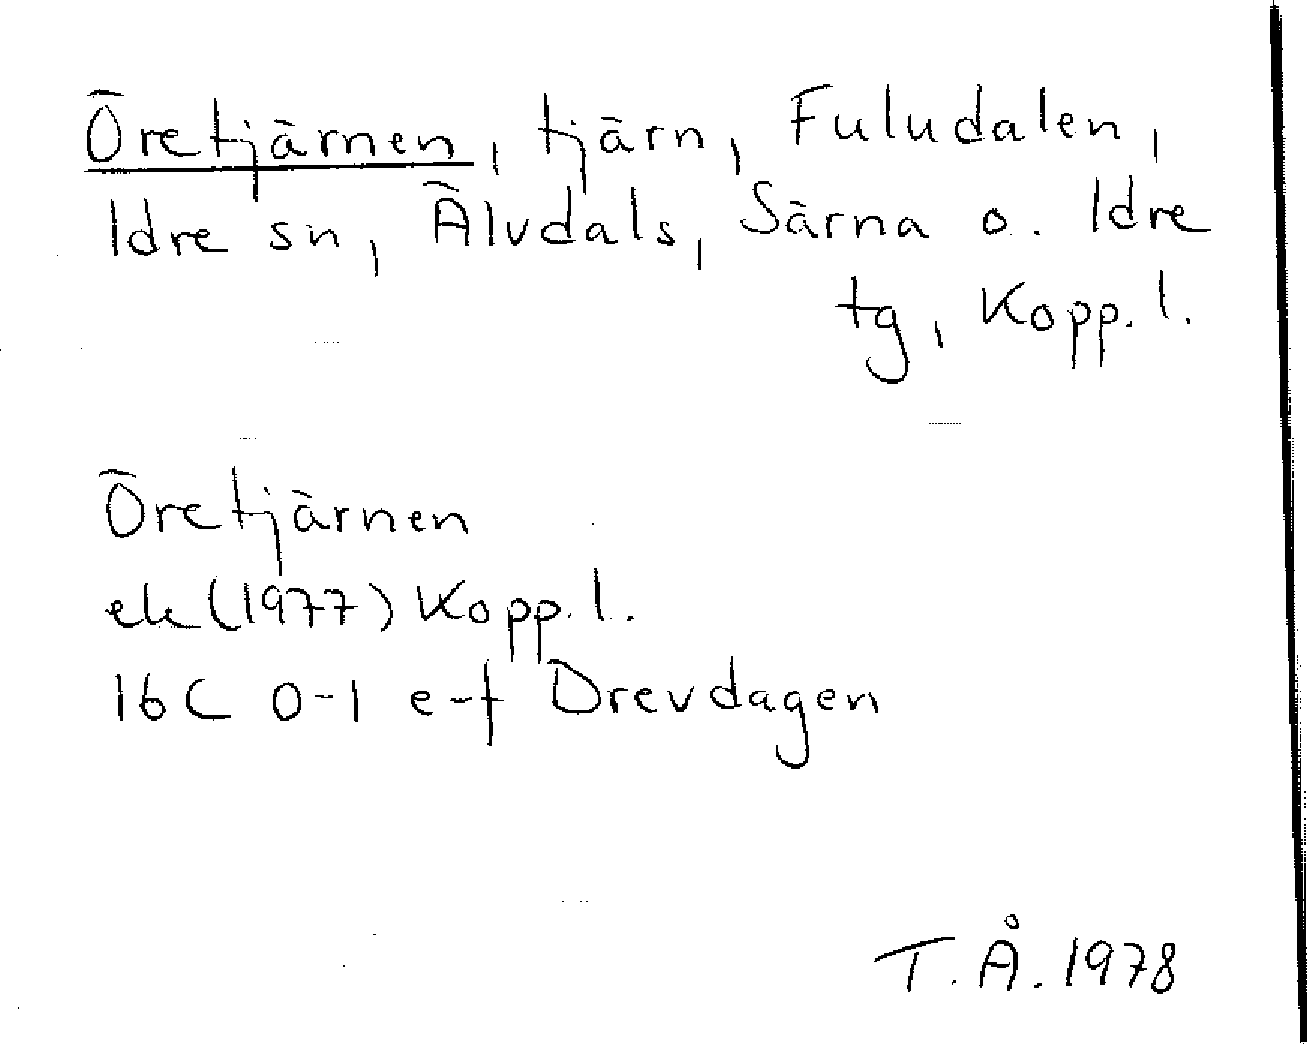 Öretjärnen, tjärn, Fuludalen,
Idre sn, Älvdals, Särna o. Idre
tg, Kopp. l.
Öretjärnen
ek (1977) Kopp. l.
16C 0-1 e-f Drevdagen
T. Å. 1978